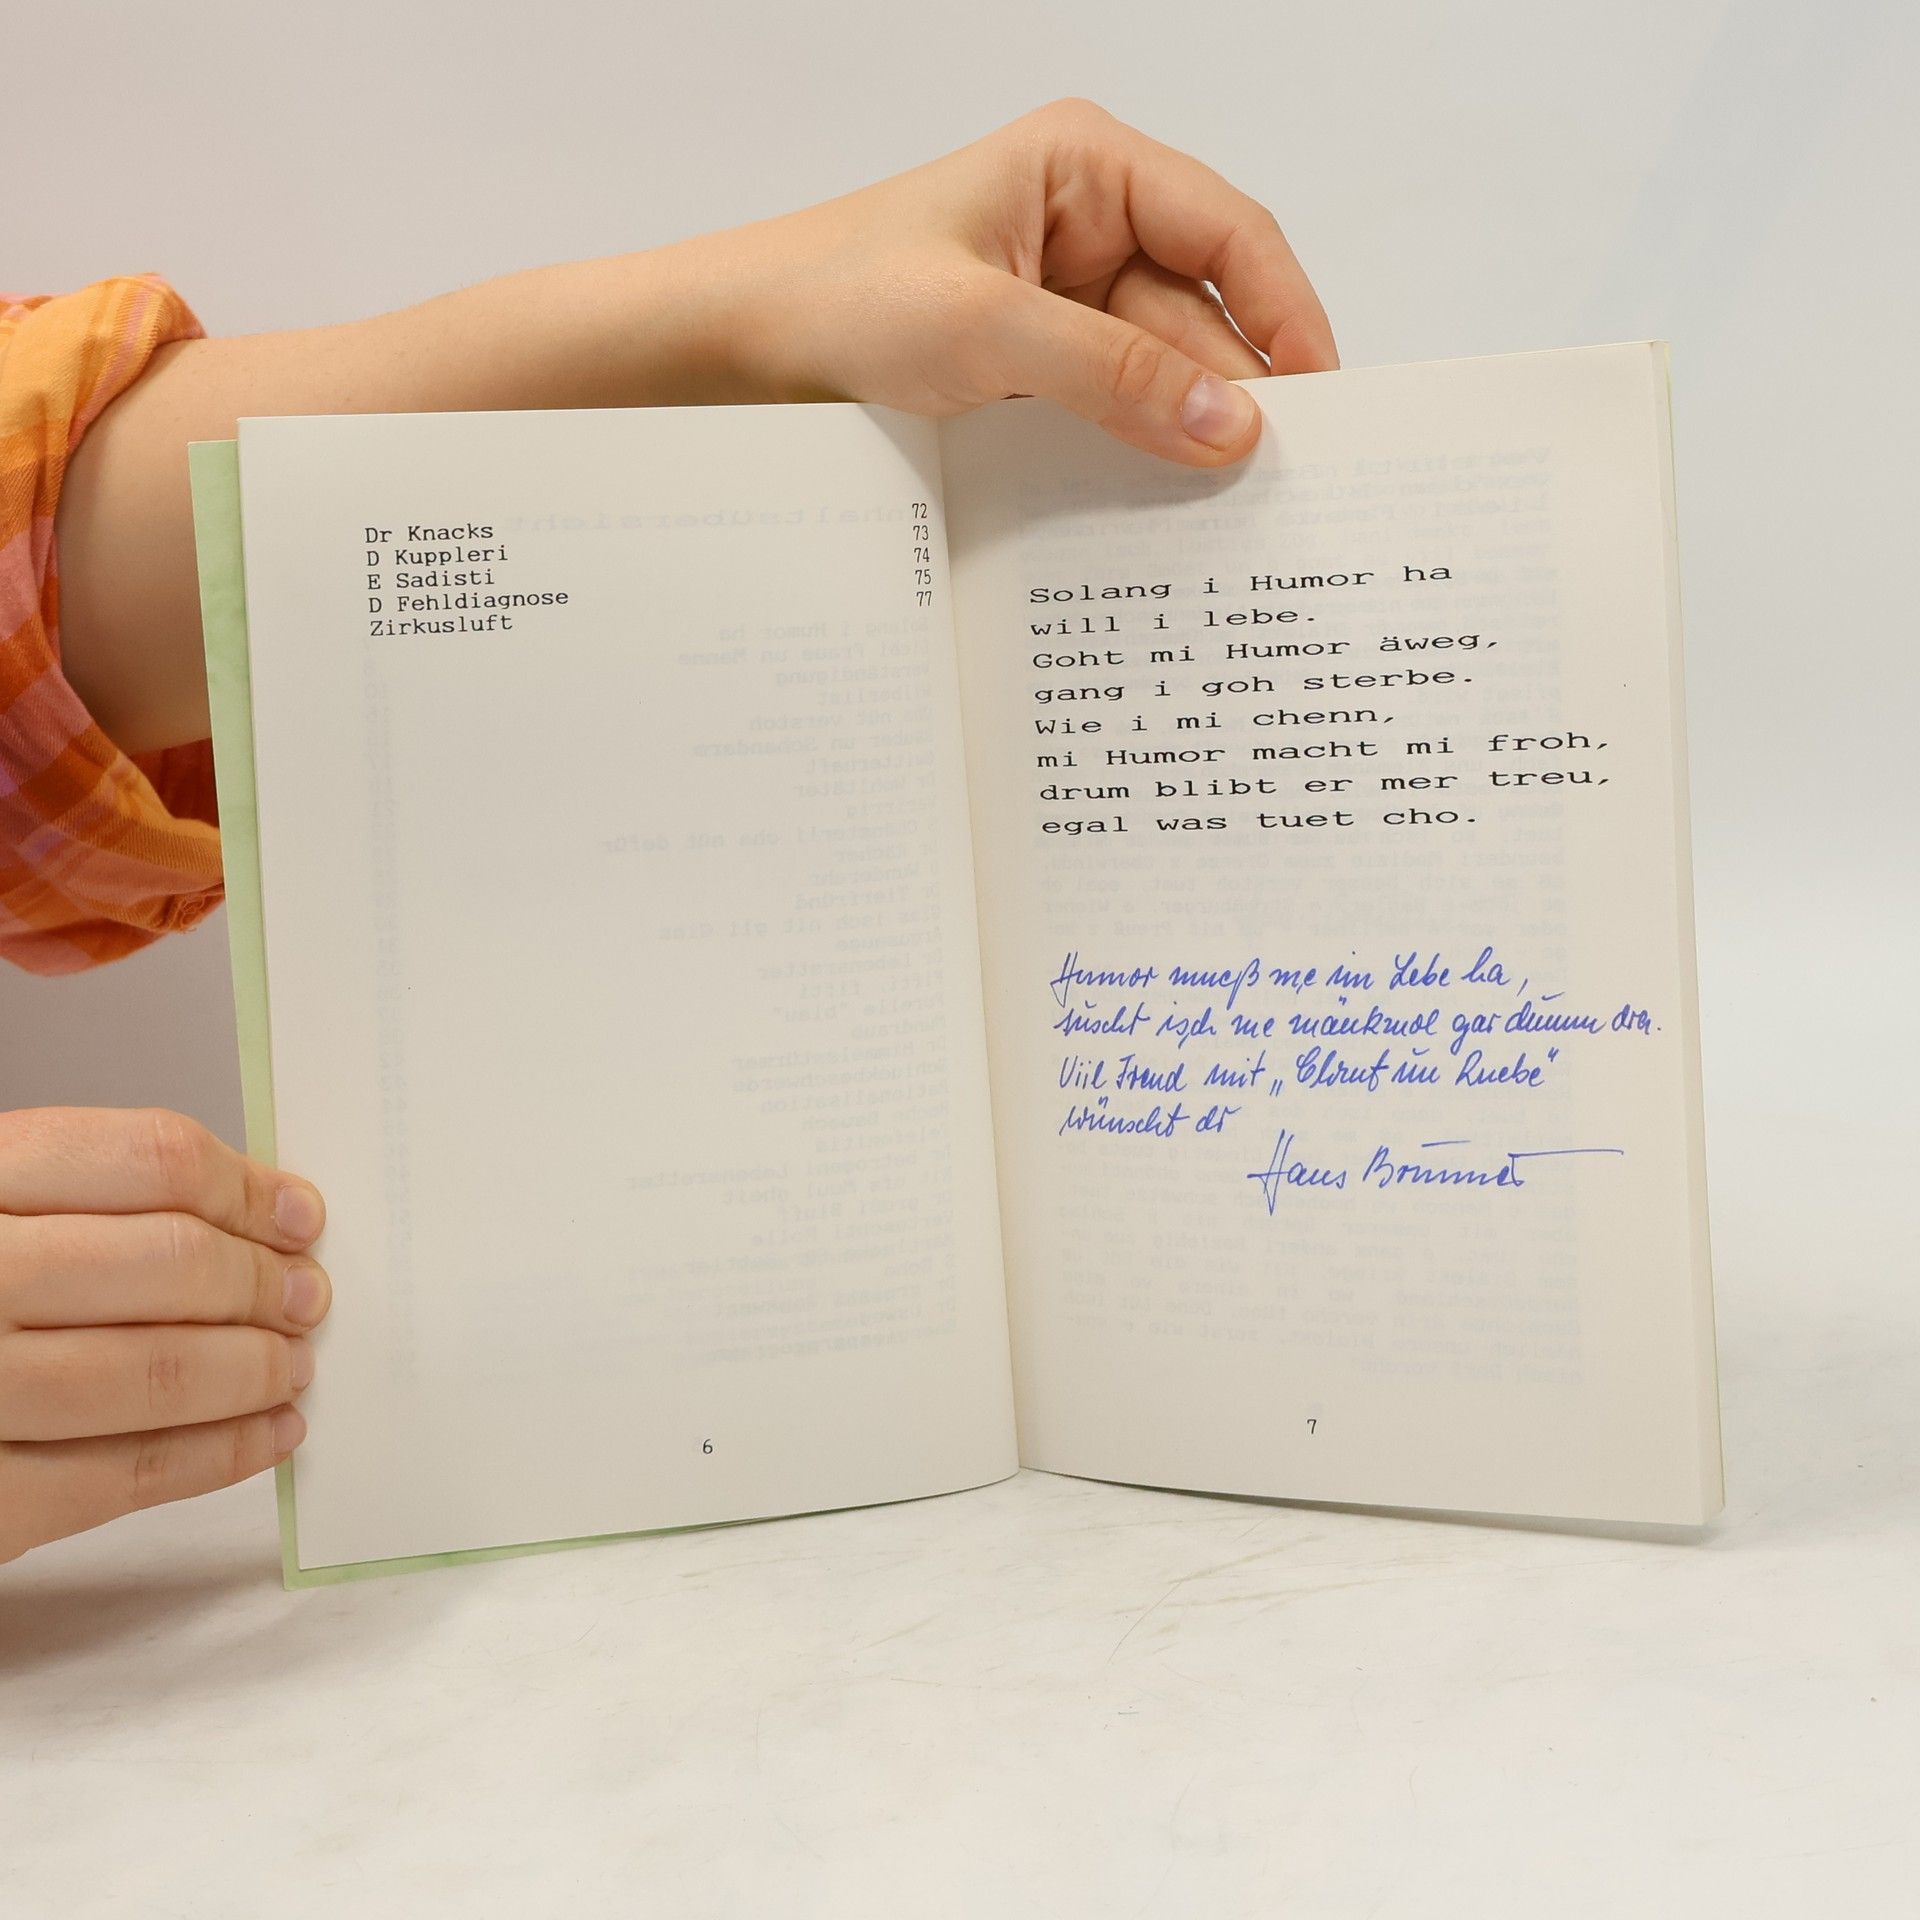 Dr Knacks 72
D Kuppleri 73
E Sadisti 74
D Fehldiagnose 75
Zirkusluft 77
6
Solang i Humor ha
will i lebe.
Goht mi Humor äweg,
gang i goh sterbe.
Wie i mi chenn,
mi Humor macht mi froh,
drum blibt er mer treu,
egal was tuet cho.
Humor mueß me im Lebe ha,
suscht isch me mänkmol gar dumm dra.
Viil Freud mit „Chrut un Ruebe"
wünscht dr
Hans Brunner
7